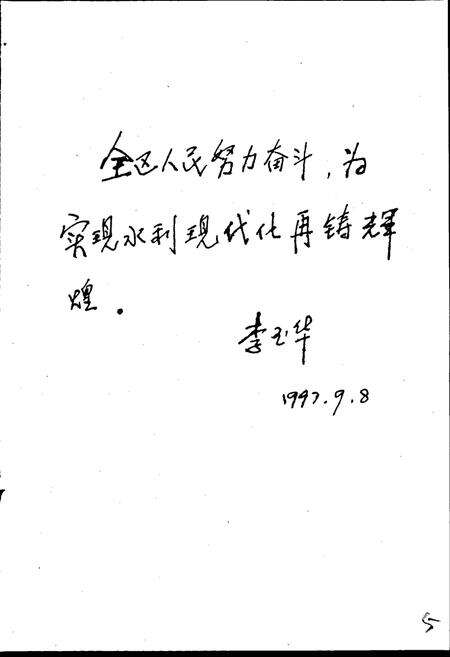 全区人民努力奋斗，为
实现水利现代化再铸辉
煌。
李玉华
1997.9.8
5